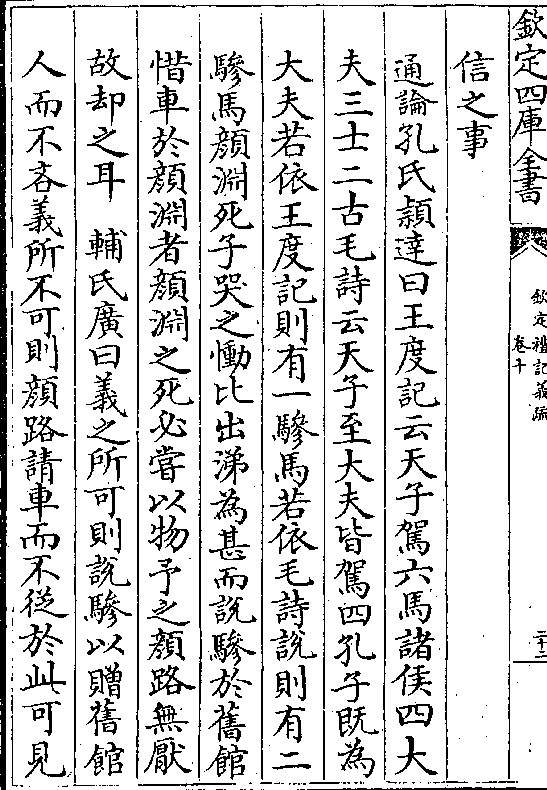 欽定四庫全書
欽定禮記義疏
卷十
二十二
信之事
通論孔氏穎達曰王度記云天子駕六馬諸侯四大
夫三士二古毛詩云天子至大夫皆駕四孔子既為
大夫若依王度記則有一驂馬若依毛詩說則有二
驂馬顔淵死子哭之慟比出涕為甚而説驂於舊館
惜車於顔淵者顔淵之死必嘗以物予之顔路無厭
故却之耳　輔氏廣曰義之所可則說驂以贈舊館
人而不吝義所不可則顔路請車而不從於此可見